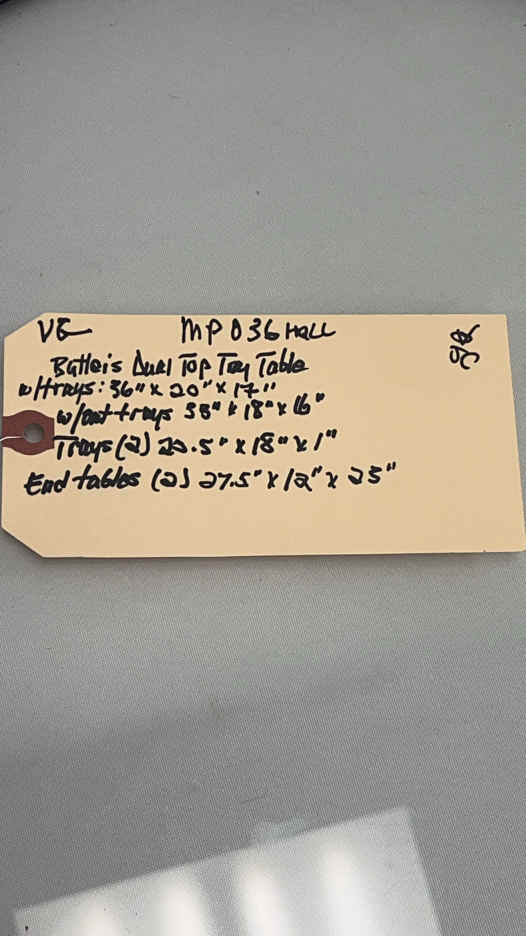 VG MP036 Hall
Dual Top Tray Table
w/trays: 36" x 20" x 17"
w/out trays 35" x 18" x 16"
Trays (2) 20.5" x 18" x 1"
End tables (2) 27.5" x 12" x 25"